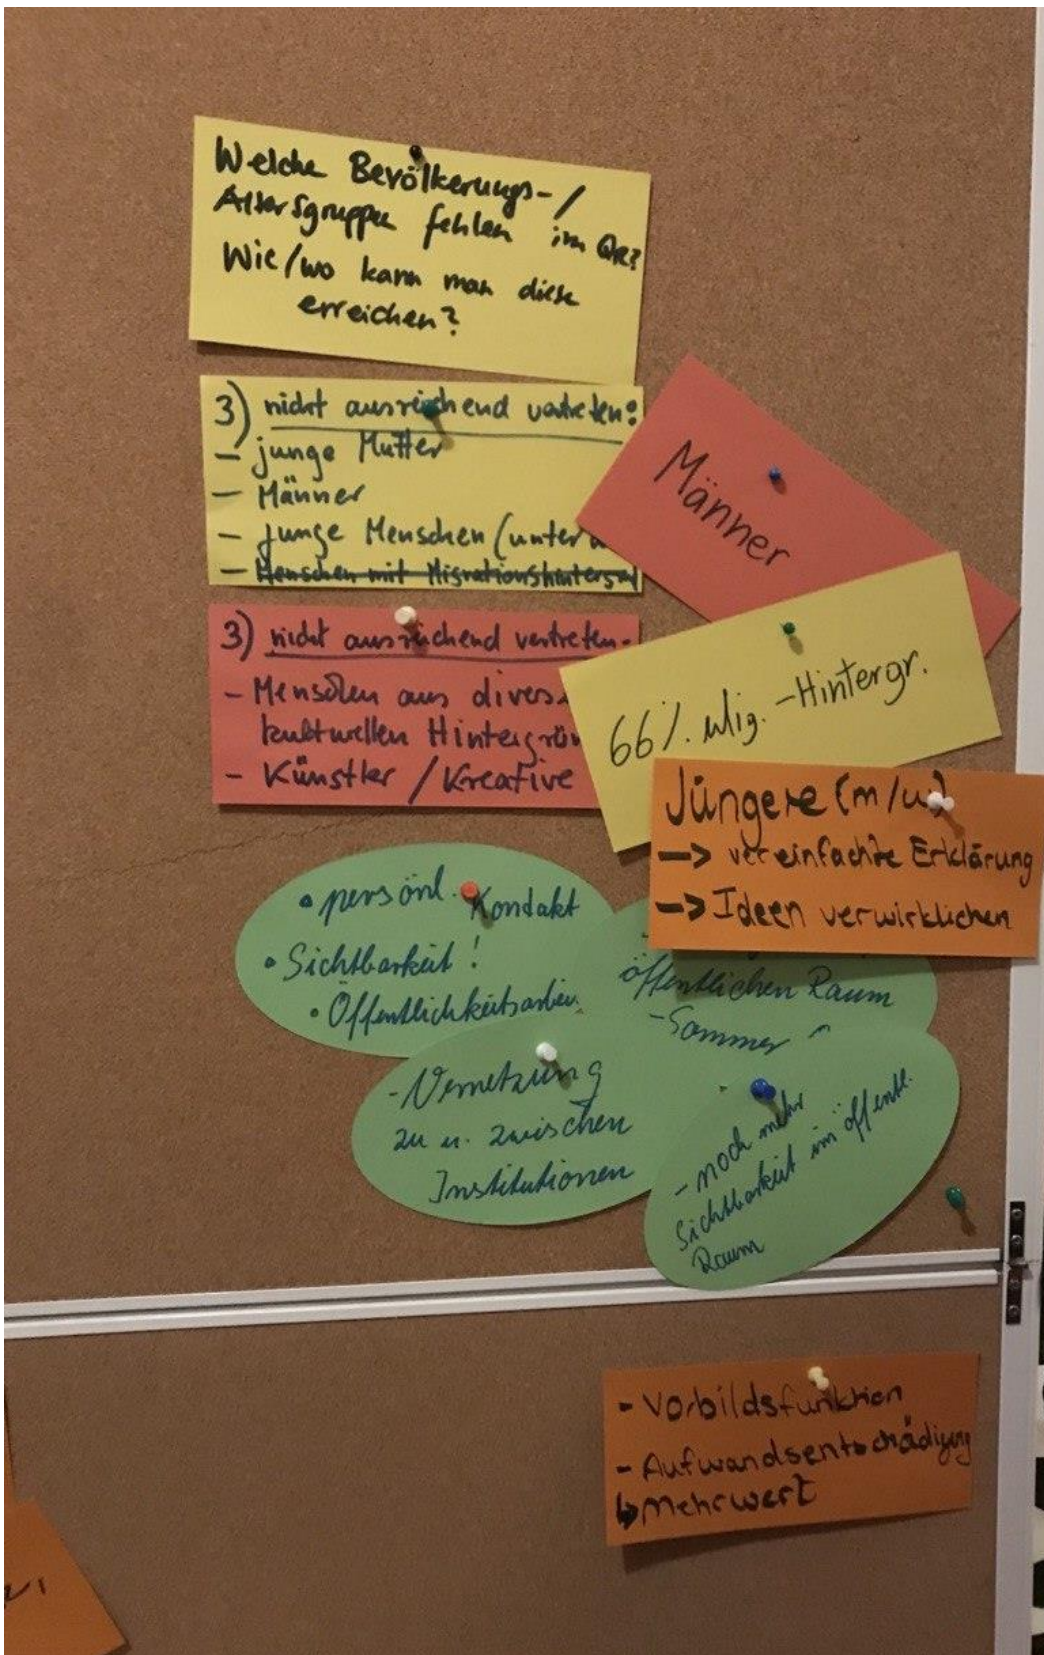 Welche Bevölkerungs-/
Altersgruppen fehlen im QR?
Wie/wo kann man diese
erreichen?
3) nicht ausreichend vertreten:
- junge Mütter
- Männer
- junge Menschen (unter
- Menschen mit Migrationshintergrund
Männer
3) nicht ausreichend vertreten
- Menschen aus divers
kulturellen Hintergrün
- Künstler / Kreative
66% Mig.-Hintergr.
Jüngere (m/w)
-> vereinfachte Erklärung
-> Ideen verwirklichen
• persönl. Kontakt
• Sichtbarkeit!
• Öffentlichkeitsarbei
öffentlichen Raum
- Sommer
- Vernetzung
zu u. zwischen
Institutionen
- noch mehr
Sichtbarkeit im öffentl.
Raum
- Vorbildsfunktion
- Aufwandsentschädigung
↳ Mehrwert